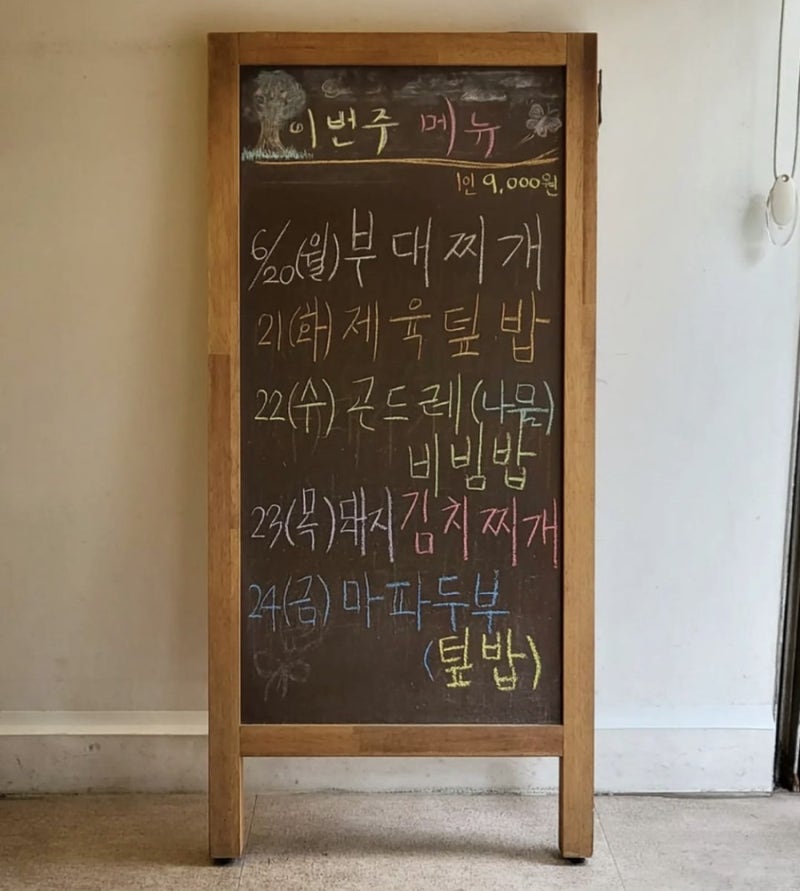 이번주 메뉴
1인 9,000원
6/20(월) 부대찌개
21(화) 제육덮밥
22(수) 곤드레(나물)
비빔밥
23(목) 돼지김치찌개
24(금) 마파두부
(덮밥)